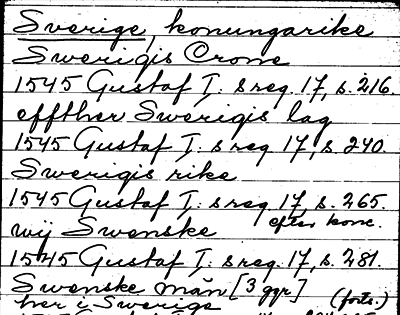 Sverige, konungarike
Swerigis Crone
1545 Gustaf I: s reg. 17, s. 216.
effther Swerigis lag
1545 Gustaf I: s reg 17, s. 240.
Swerigis rike
1545 Gustaf I: s reg 17, s. 265.
wij Swenske efter konc.
1545 Gustaf I: s reg. 17, s. 281.
Swenske män [3 ggr] (forts.)
her i Swerige